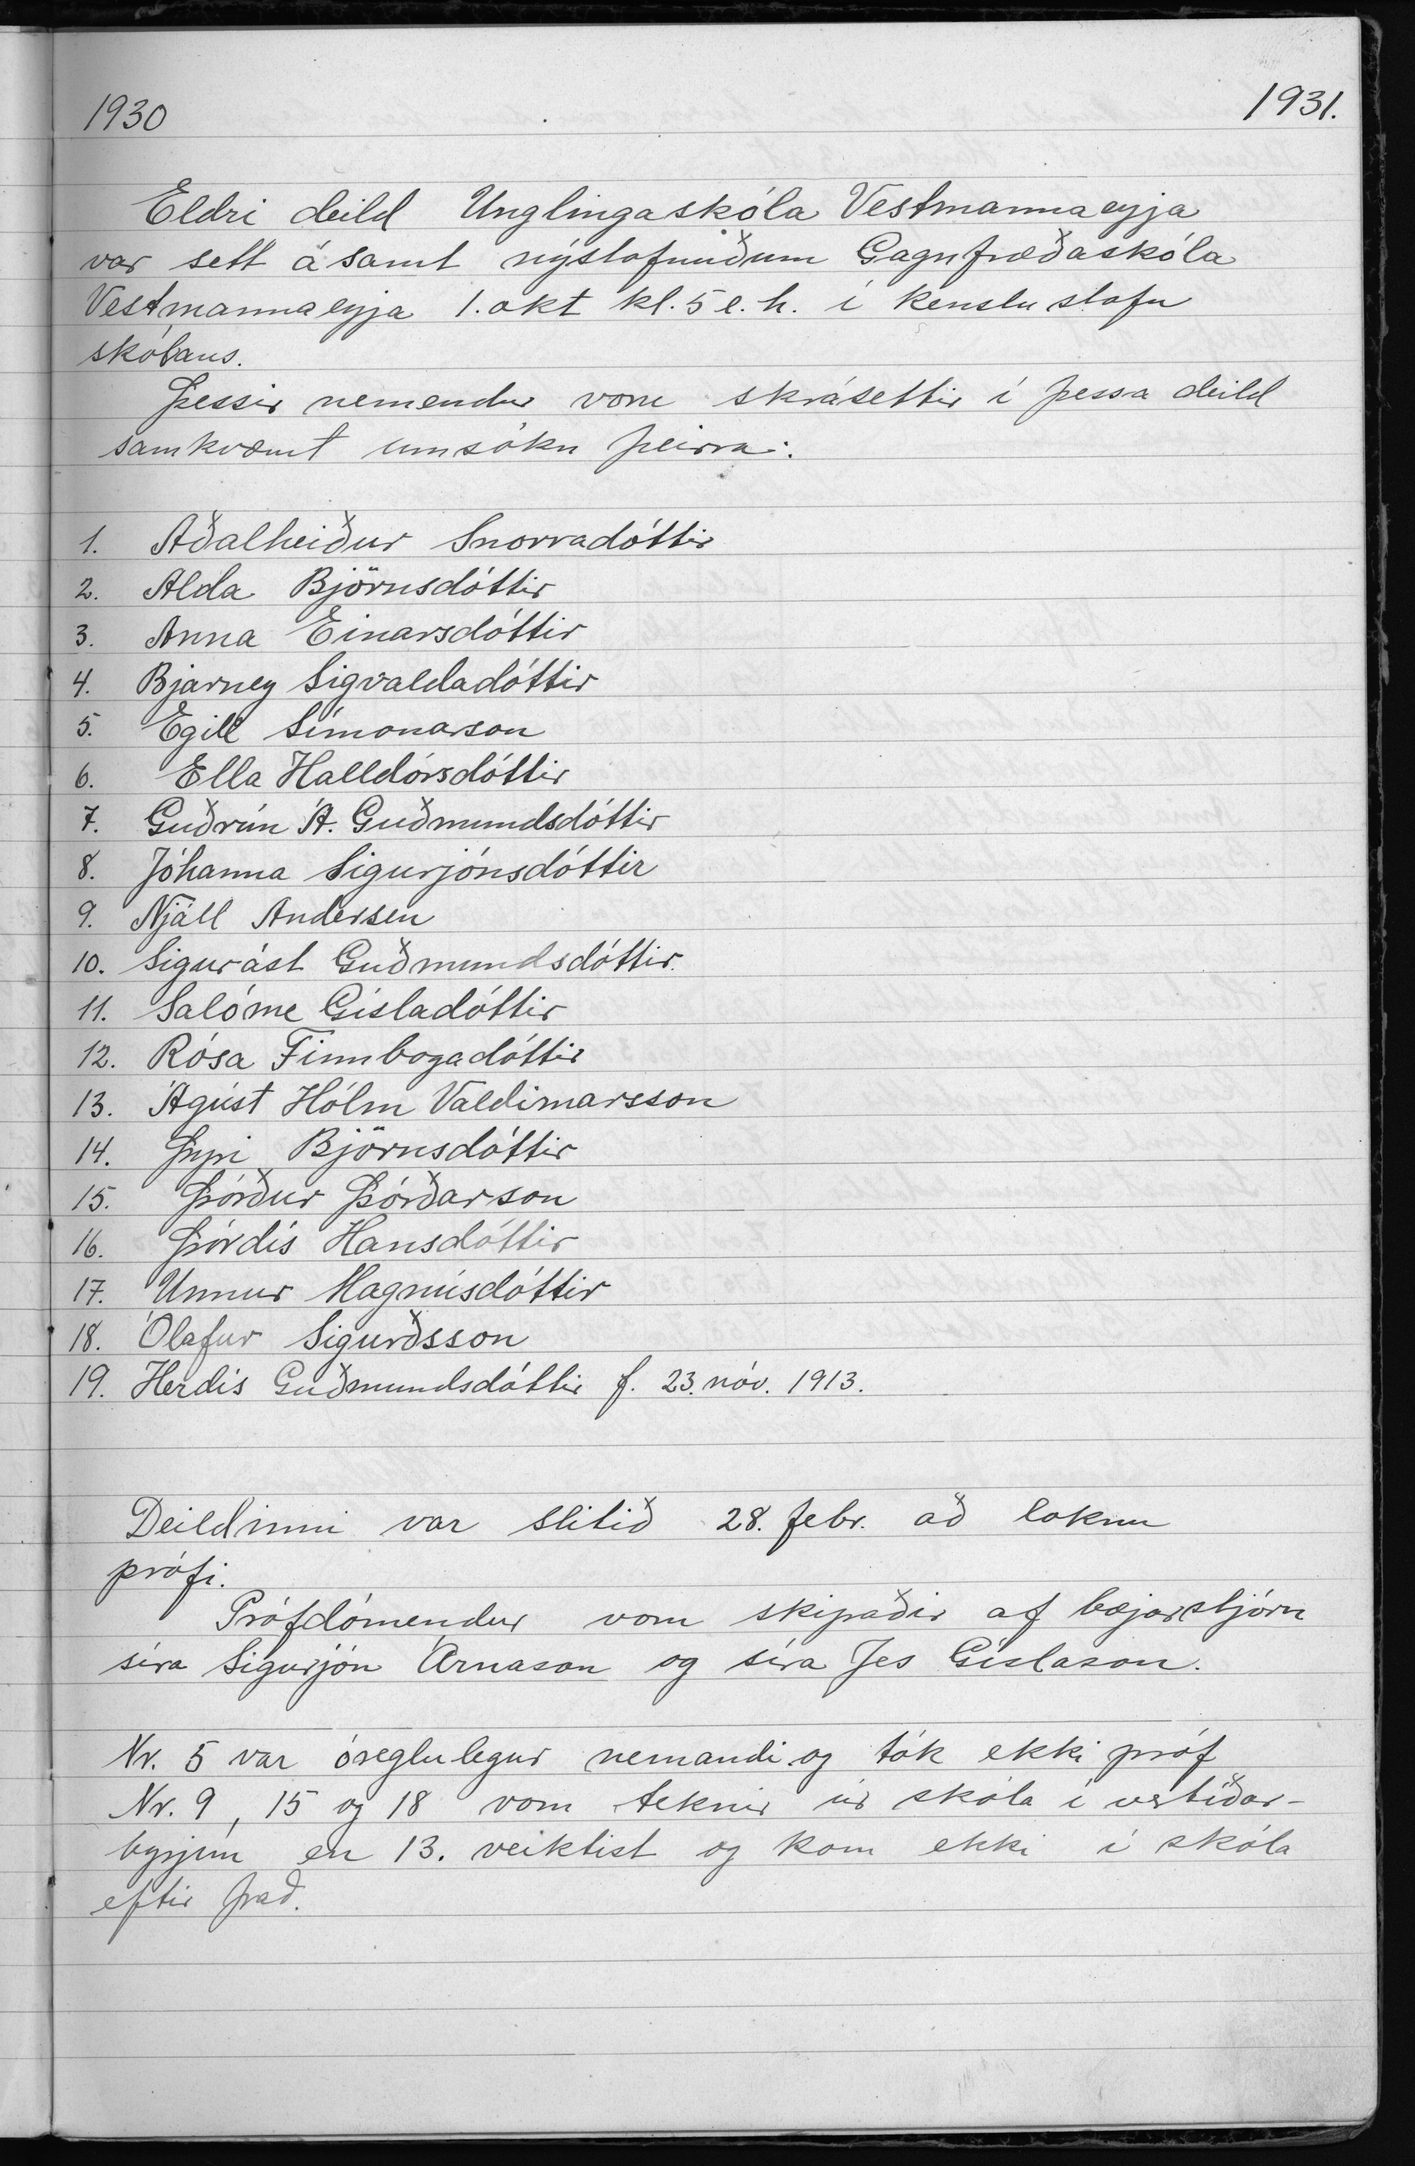 1930
1931.
Eldri deild Unglingaskóla Vestmannaeyja
var sett ásamt nýstofnuðum Gagnfræðaskóla
Vestmannaeyja 1. okt kl. 5 e. h. í kenslustofu
skólans.
Þessir nemendur voru skrásettir í þessa deild
samkvæmt umsókn þeirra:
1. Aðalheiður Snorradóttir
2. Alda Björnsdóttir
3. Anna Einarsdóttir
4. Bjarney Sigvaldadóttir
5. Egill Símonarson
6. Ella Halldórsdóttir
7. Guðrún Á. Guðmundsdóttir
8. Jóhanna Sigurjónsdóttir
9. Njáll Andersen
10. Sigurást Guðmundsdóttir.
11. Salóme Gísladóttir
12. Rósa Finnbogadóttir
13. Ágúst Hólm Valdimarsson
14. Þyri Björnsdóttir
15. Þórður Þórðarson
16. Þórdís Hansdóttir
17. Unnur Magnúsdóttir
18. Ólafur Sigurðsson
19. Herdís Guðmundsdóttir f. 23. nóv. 1913.
Deildinni var slitið 28. febr. að loknu
prófi.
Prófdómendur voru skipaðir af bæjarstjórn
síra Sigurjón Árnason og síra Jes Gíslason.
Nr. 5 var óreglulegur nemandi og tók ekki próf
Nr. 9, 15 og 18 voru teknir úr skóla í vertíðar-
byrjun en 13. veiktist og kom ekki í skóla
eftir það.